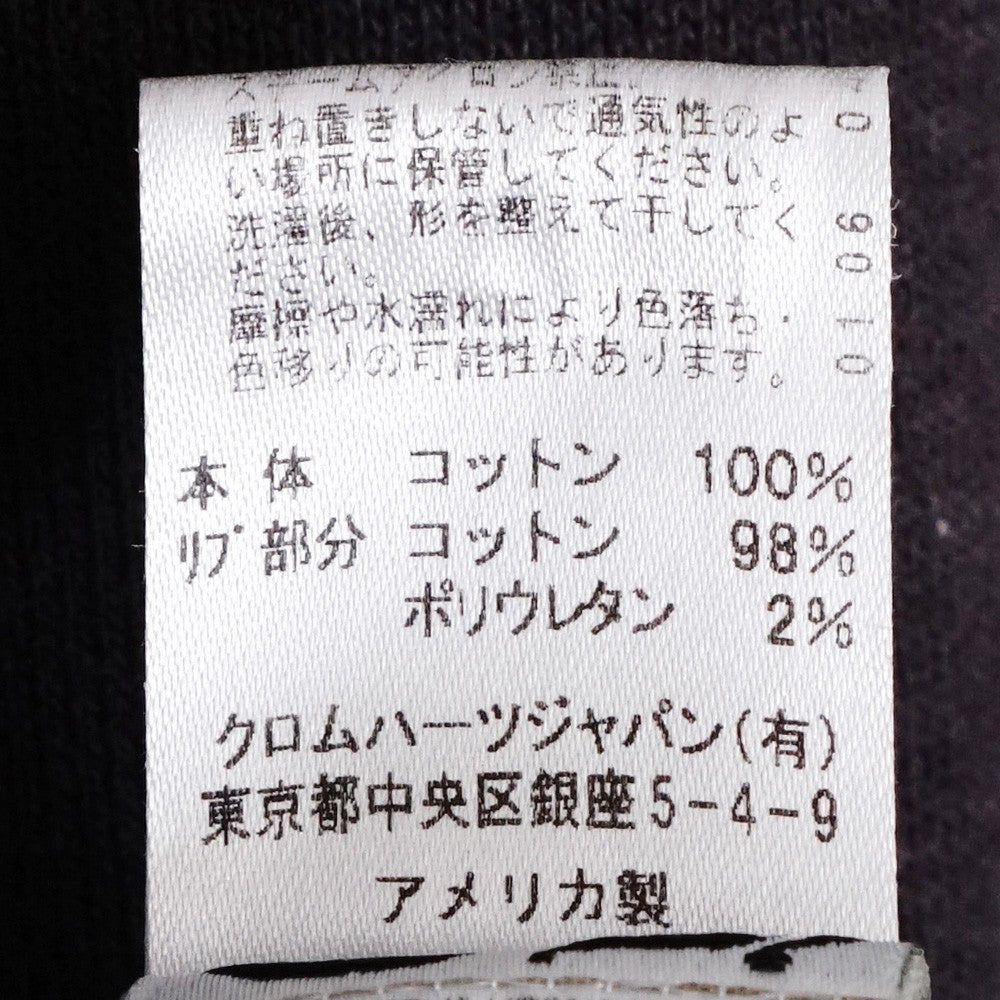 重ね置きしないで通気性のよ
い場所に保管してください。
洗濯後、形を整えて干してく
ださい。
摩擦や水濡れにより色落ち・
色移りの可能性があります。
本体 コットン 100%
リブ部分 コットン 98%
ポリウレタン 2%
クロムハーツジャパン(有)
東京都中央区銀座5-4-9
アメリカ製
0106